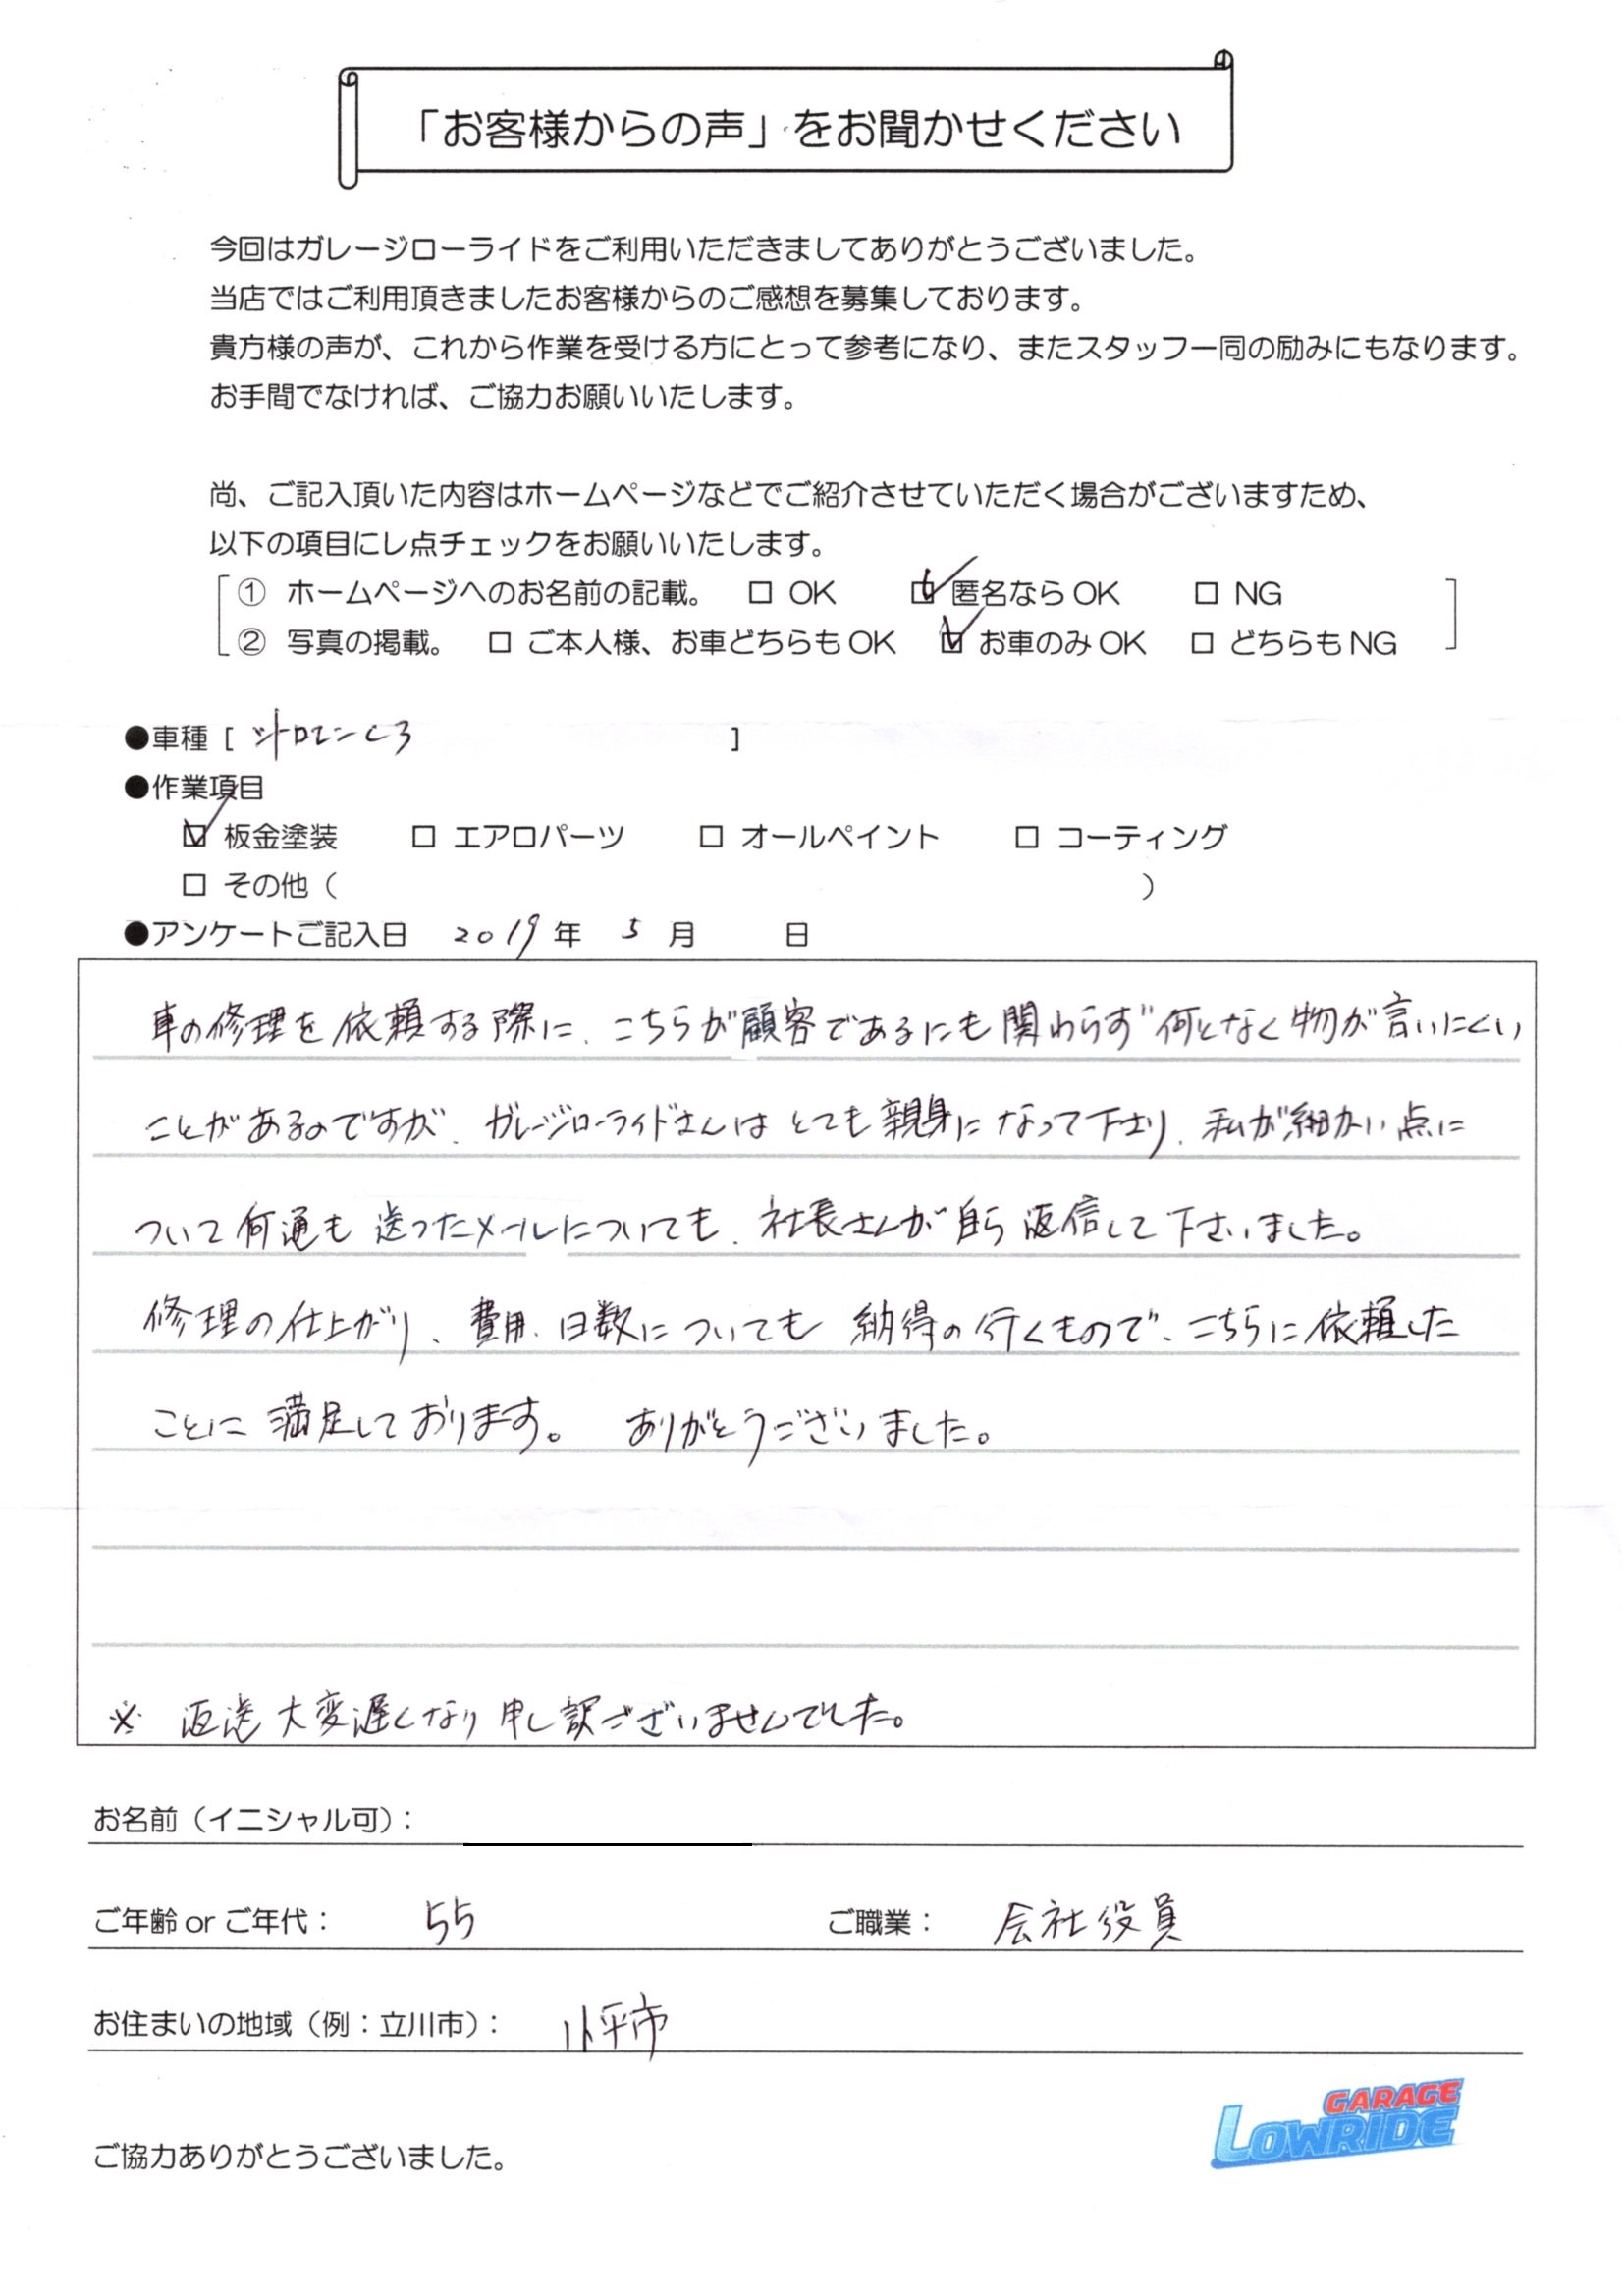 「お客様からの声」をお聞かせください
今回はガレージローライドをご利用いただきましてありがとうございました。
当店ではご利用頂きましたお客様からのご感想を募集しております。
貴方様の声が、これから作業を受ける方にとって参考になり、またスタッフ一同の励みにもなります。
お手間でなければ、ご協力お願いいたします。
尚、ご記入頂いた内容はホームページなどでご紹介させていただく場合がございますため、
以下の項目にレ点チェックをお願いいたします。
① ホームページへのお名前の記載。 □ OK ☑ 匿名なら OK □ NG
② 写真の掲載。 □ ご本人様、お車どちらも OK ☑ お車のみ OK □ どちらも NG
●車種 [ シトロエン C3 ]
●作業項目
☑ 板金塗装 □ エアロパーツ □ オールペイント □ コーティング
□ その他（ ）
●アンケートご記入日 2019 年 5 月 日
車の修理を依頼する際に、こちらが顧客であるにも関わらず何となく物が言いにくい
ことがあるのですが、ガレージローライドさんはとても親身になって下さり、私が細かい点に
ついて何通も送ったメールについても、社長さんが自ら返信して下さいました。
修理の仕上がり、費用、日数についても納得の行くもので、こちらに依頼した
ことに満足しております。 ありがとうございました。
※ 返送大変遅くなり申し訳ございませんでした。
お名前（イニシャル可）：
ご年齢 or ご年代： 55 ご職業： 会社役員
お住まいの地域（例：立川市）： 小平市
GARAGE
LOWRIDE
ご協力ありがとうございました。